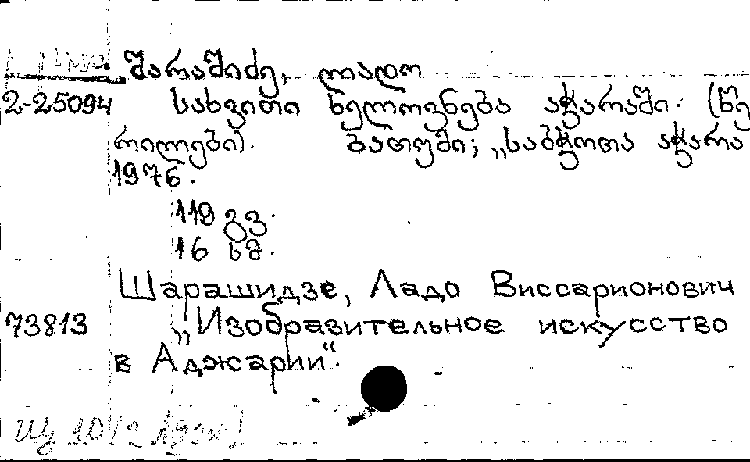 შარაშიძე, ლადო
2-25094 სახვითი ხელოვნება აჭარაში. (წე
რილები). ბათუმი; „საბჭოთა აჭარა
1976.
119 გვ.
16 სმ.
Шарашидзе, Ладо Виссарионович
73813 „Изобразительное искусство
в Аджарии“.